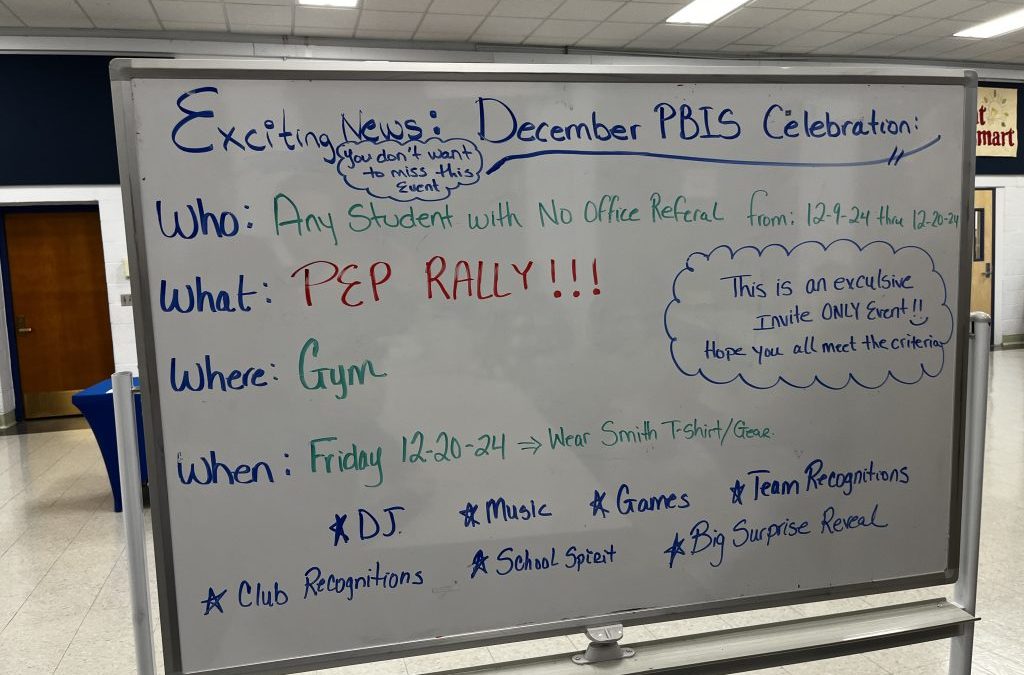 Exciting News: December PBIS Celebration:
you don't want
to miss this
Event
Who: Any Student with No Office Referal from: 12-9-24 thru 12-20-24
What: PEP RALLY!!!
This is an exculsive
Invite ONLY Event!!
Hope you all meet the criteria
Where: Gym
When: Friday 12-20-24 ⇒ Wear Smith T-Shirt/Gear.
☆ DJ. ☆ Music ☆ Games ☆ Team Recognitions
☆ Club Recognitions ☆ School Spirit ☆ Big Surprise Reveal